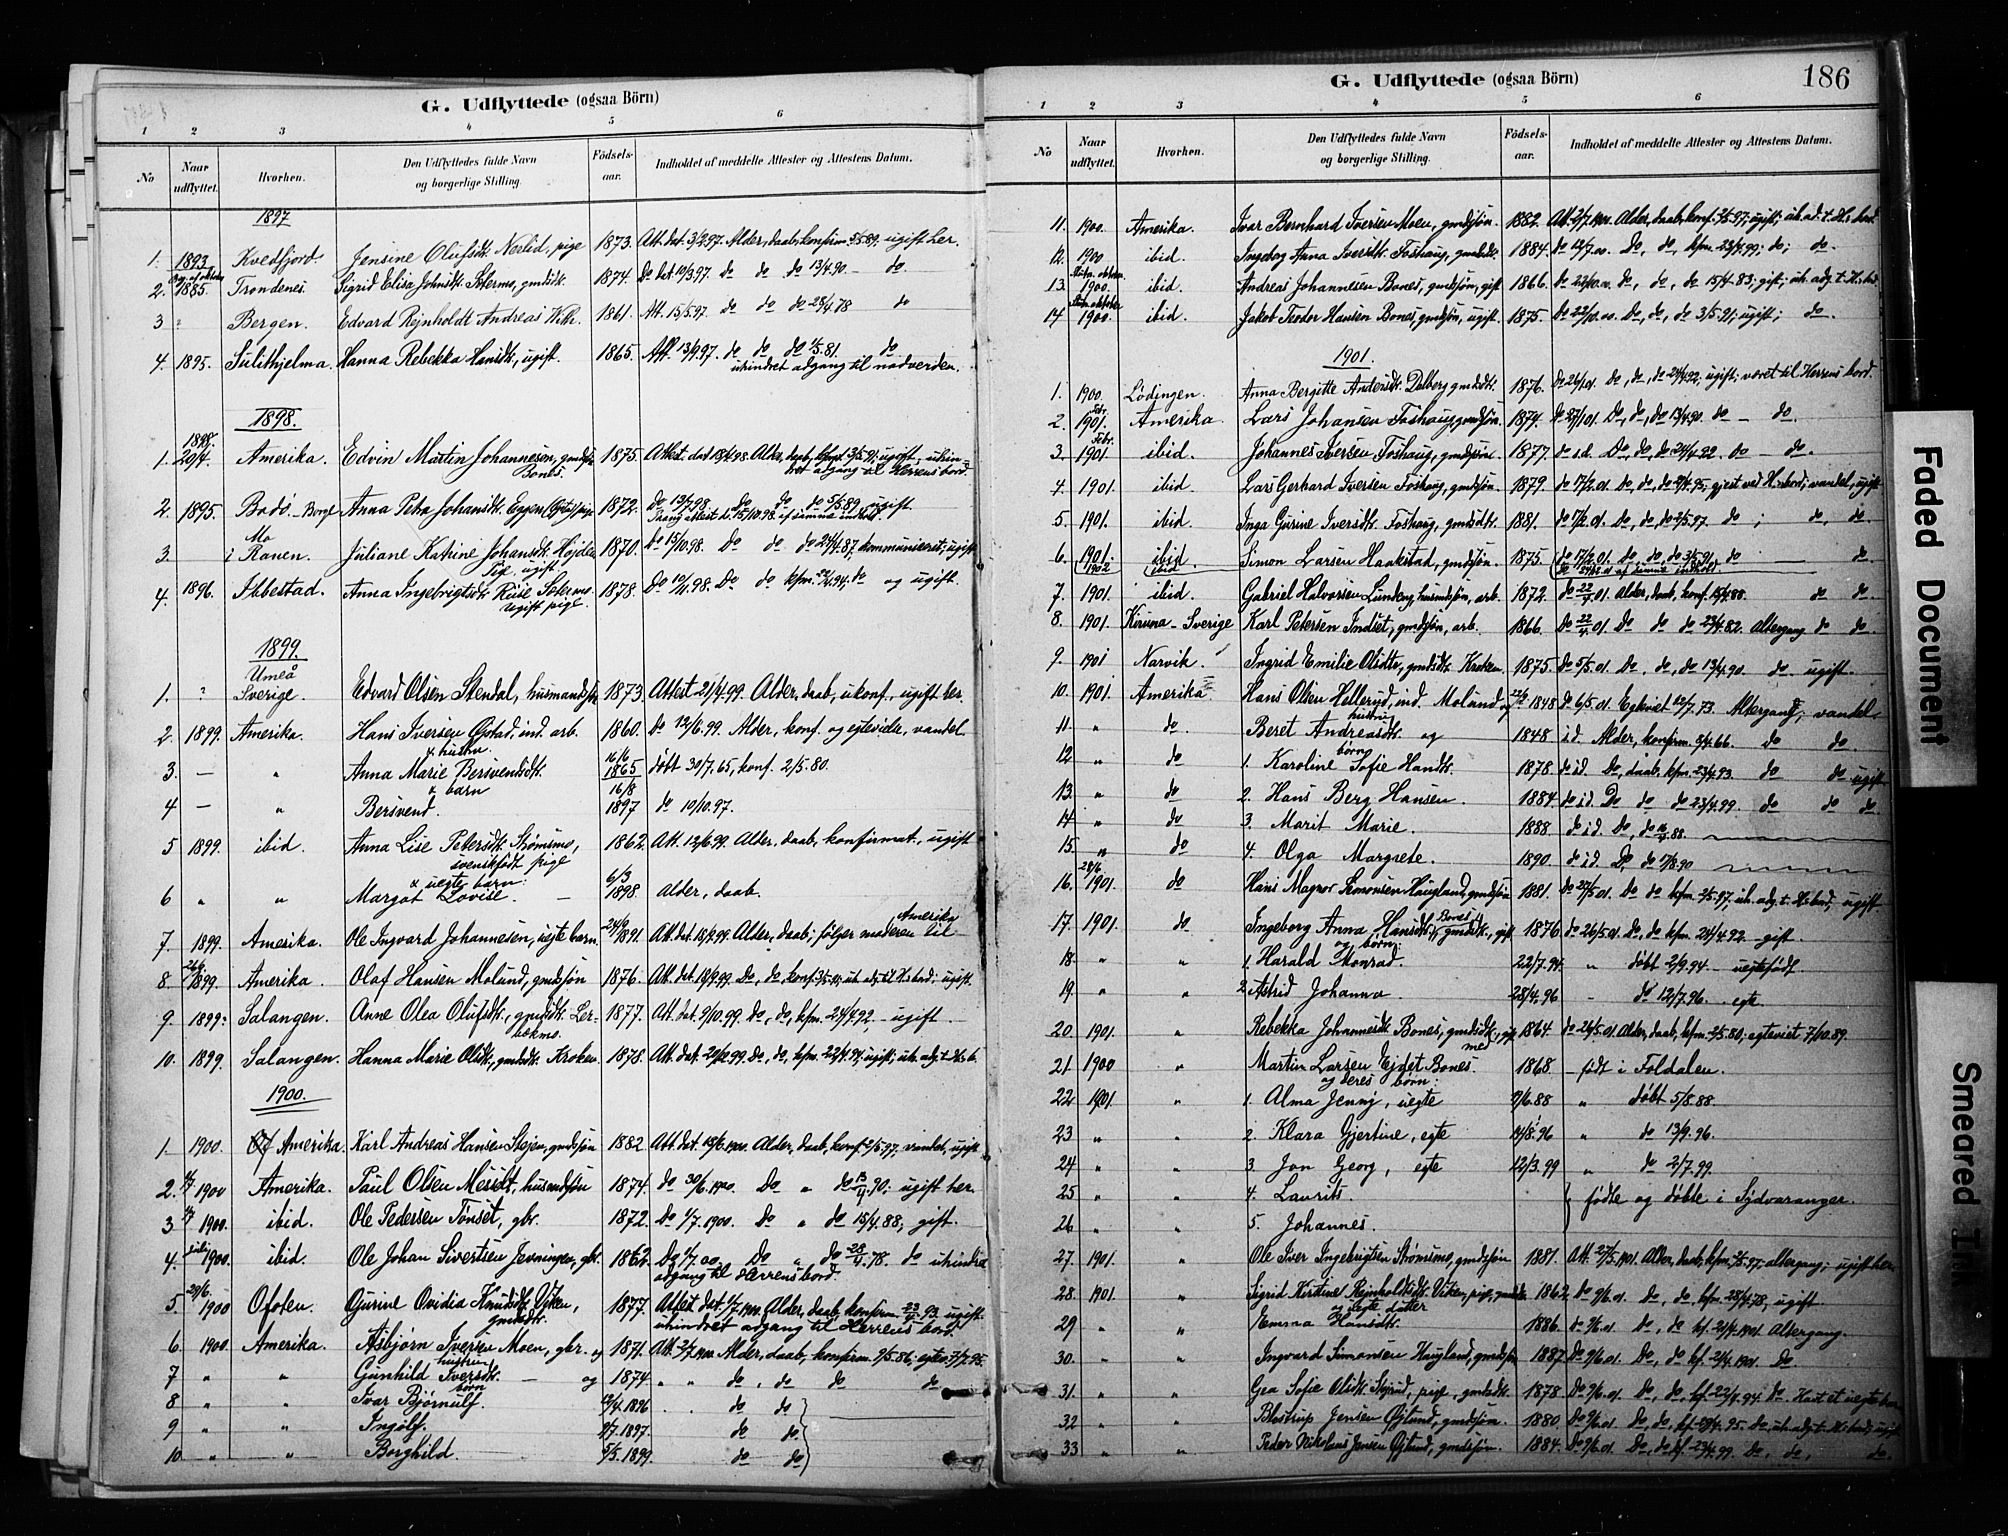 G. Udflyttede (ogsaa Börn)
1 2 3 4 5 6
No Naar udflyttet. Hvorhen. Den Udflyttedes fulde Navn og borgerlige Stilling. Födsels-aar. Indholdet af meddelte Attester og Attestens Datum.
1897
1. 1893 Kvedfjord. Jensine Olufsdt. pige 1873. Att. dat. 3/2.97. Alder, daab, konfirm. ugift her.
2. 1885. Trondenes. Sigrid Elisa Johnsdt. gmdsdt. 1874. Do dat. 10/3.97. do do do 13/4.90. — do
3 " Bergen. Edvard Rejnholdt Andreas Wilh. 1861. Att. 15/5.97. do do do 28/4.78 do
4. 1895. Sulithjelma. Hanna Rebekka Hansdt., ugift. 1865. Att. 13/9.97. do do do 1/5.81. do
uhindret adgang til nadverden.
1898.
1. 1898. 20/4. Amerika. Edvin Martin Johannesen, gmdsøn Bones. 1875. Attest. dat. 18/4.98. Alder, daab, konf. 3/5.91; ugift, uhindret adgang til Herrens bord.
2. 1895. Bodö - Anna Petra Johansdt. Eggen pige 1872. do 12/7.98. do do do 5/5.89. ugift.
3. Mo i Ranen. Juliane Katrine Johansdt. Højdere Pige, ugift 1870. Do 15/10.98. Do do do 24/4.87, kommuniceret; ugift
4. 1896. Ibbestad. Anna Ingebrigtsdt. ugift pige. 1878. Do Do do kfm. do og ugift.
1899.
1. " Umeå Sverige. Edvard Olsen Stendal, husmandssøn 1873. Attest 21/4.99. Alder, daab, ukonf., ugift her.
2. 1899. Amerika. Hans Iversen ind. arb. 1860. Do 12/6.99. Alder, konf. og egteviede, vandel
& hustru
3. — " Anna Marie Bersvendsdt. 16/6 1865 døbt 30/7.65, konf. 2/5.80.
& barn
4 — " Bersvend. 16/8 1897 do 10/10.97.
5 1899. ibid. Anna Lise Petersdt. Strømsmo, svenskfødt pige 1862. Att. 12/6.99. Alder, daab, konfirmat., ugift
& uegte barn:
6 " " Margot Lovise. — 6/3 1898 Alder, daab.
7. 1899. Amerika. Ole Ingvard Johannesen, uegte barn. 24/6 1891. Att. dat. 18/9.99. Alder, daab; følger moderen til Amerika
8. 1899. Amerika. Olaf Hansen Molund, gmdsøn 1876. Att. dat. 18/9.99. Do, do, konf. uh. adg. til H. bord; ugift.
9. 1899. Salangen. Anne Olea Olufsdt., gmdsdt. Lerbækmo. 1877. Att. dat. 9/10.99. Do, do, kfm. 24/4.92 — ugift.
10. 1899. Salangen. Hanna Marie Olsdt., gmdsdt. Kroken. 1878. Att. dat. Do, do, kfm. 22/4.94; ugift; uh. adg. t. H. b.
1900.
1. 1900. Amerika. Karl Andreas Hansen gmdsøn 1882 Att. dat. 1900. Alder, daab, konf. 2/5.97, vandel, ugift
2. 1900 Amerika. Paul Olsen husmdsøn 1874. do 30/6.1900. Do " do 13/4.90; ugift her.
3 1900. ibid. Ole Pedersen Tønset, gbr. 1872. Do 1/7.1900. Do " do 15/4.88, gift.
4. 1900. ibid. Ole Johan Sivertsen gbr. 1862. Do 1/7.00. Do " do 28/4.78. do uhindret adgang til Herrens bord.
5. 29/6. 1900 Ofoten. Gjurine Ovidia Knudsdt. gmdsdt. 1877. Attest dat. 1/7.1900. Alder, daab, konfirm. 23/4.93, ugift uhindret adgang til Herrens bord.
6. 1900. Amerika. Asbjørn Iversen Moen, gbr. og 1871. Att. 2/7.1900. Alder, daab, konfirm. 9/5.86, egtev. 7/7.95.
hustru
7 " " Gunhild Iversdt. — og 1874. " " do, do do do
børn
8 " " Ivar Bjørnulf. 12/4.1896 " " do do
9 " " Ingolf. 1897. do do
10. " " Borghild. 5/3.1899. do do
G. Udflyttede (ogsaa Börn) 186
1 2 3 4 5 6
No Naar udflyttet. Hvorhen. Den Udflyttedes fulde Navn og borgerlige Stilling. Födsels-aar. Indholdet af meddelte Attester og Attestens Datum.
11. 1900. Amerika. Ivar Bernhard Iversen Moen, gmdsøn. 1882. Att. 2/7.1900. Alder, daab, konf. 2/5.97; ugift; uh. ad. t. H. bord.
12. 1900 ibid. Ingeborg Anna Iversdt. Foshaug, gmdsdt. 1884. do 12/7.00. Do, do, kfm. 23/4.99; do; do.
13. 1900. ibid. Andreas Johannesen Bones, gmdsøn, gift 1866. do 22/10.00. do, do, do 15/4.83; gift; uh. adg. t. H. bord
14. 1900. ibid. Jakob Teodor Hansen Bones, gmdsøn, ugift. 1875. Do 22/10.00. Do, do, do 3/5.91; ugift; do.
1901.
1. 1900. Lödingen. Anna Bergitte Andersdt. Dalberg gmdsdt. 1876. Do, do, do 24/4.92; ugift; været til Herrens bord.
2. Febr. 1901. Amerika. Lars Johansen Foshaug, gmdsøn. 1874. do 27/1.01. Do, do, do 13/4.90. do — do.
3. Febr. 1901 ibid. Johannes Iversen Foshaug, gmdsøn. 1877. do i.d. Do, do, do 24/4.92. do — do.
4. 1901. ibid. Lars Gerhard Iversen Foshaug, gmdsøn. 1879. do 17/2.01. Do, do, do gjest ved H. bord; vandel, ugift
5. 1901. ibid. Inga Gurine Iversdt. Foshaug, gmdsdt. 1881. do 17/2.01. Do, do, do 2/5.97. do; do, do.
6. 1901. 1902 ibid. ibid Simon Larsen Haakstad, gmdsøn. 1875. do 17/2.01. Do, do, do 3/5.91, do do
7. 1901. ibid. Gabriel Halvorsen Lundeng, husmdsøn, arb. 1872. do 22/4.01. Alder, daab, konf. 15/4.88 do do.
8. 1901. Kiruna - Sverige Karl Petersen Indset, gmdsøn, arb. 1866. Do 22/4.01. Do do do 23/4.82. Altergang do do.
9. 1901 Narvik. Ingrid Emilie Olsdtr, gmdsdt. Kroken. 1875. Do 5/5.01. Do, do, do 13/4.90. do. ugift.
10. 1901. Amerika. Hans Olsen Hellerud, ind. Molund og 1848. Do 6/5.01. Egteviet 12/7.73. Altergang; vandel.
hustru
11 " do. Beret Andreasdt. og 1848. i.d. Alder, konfirm. do do.
børn
12 " do 1. Karoline Sofie Hansdt. 1878. do i.d. Do, daab, kfm. 23/4.93. do do ugift
13. " do 2. Hans Berg Hansen. 1884. do i.d. Do do do 23/4.99. do do do
14 " do 3. Marit Marie. 1888. do i.d. Do, do
15. " do 4. Olga Margrete. 1890. do i.d. Do, do 17/8.90
16. 28/6 1901. do Hans Magnor Simonsen Haugland, gmdsøn 1881. do 27/5.01. Do do kfm. 2/5.97. uh. adg. t. H. bord, ugift
17. 1901. do Ingeborg Anna Hansdt. Bones, gmdsdt., gift 1876. do 26/5.01. Do, do kfm. 24/4.92 — gift.
og børn:
18. " " 1. Harald Monrad. 22/7.94. " døbt 2/9.94 — uegtefødt
19. " " 2. Astrid Johanna. 28/4.96 — do 12/7.96. egte
20. 1901. " Rebekka Johannesdt. Bones, gmdsdt., gift med 1864. do 26/5.01. Alder, daab, kfm. 2/5.80; egteviet 7/10.89.
21. 1900 " Martin Larsen Ejdet Bones. 1868 — født i Foldalen.
og deres børn:
22. 1901. " 1. Alma Jenny, uegte 9/6.88 " døbt 5/8.88.
23 " " 2. Klara Gjertine, egte 14/8.96 " do 13/9.96.
24 " " 3. Jon Georg, egte 12/3.99 " do 2/7.99.
25 " " 4. Laurits. fødte og døbte i Sydvaranger.
26 " " 5. Johannes.
27. 1901. " Ole Iver Ingebrigtsen Strømsmo, gmdsøn 1881. Att. 27/5.1901. Alder, daab, kfm. 2/5.97; altergang; ugift her.
28. 1901. " Sigrid Kirstine Rejnholdtsdt. Viken, pige, 1862. Do 9/6.01. do, do, kfm. 28/4.78, ugift.
og egte datter
29 " " Emma Hansdt. 1886. do 9/6.01. Do, do kf. 21/4.1901. Altergang.
30. " " Ingvard Simonsen Haugland, gmdsøn 1887. Do 9/6.01. Do, do kf. 21/4.1901. Do
31. " " Gea Sofie Olsdt. pige, gmdsdt. 1878 Do 9/6.01. do, do, kf. 22/4.94. do. Havt et uegte barn
32 " " Blostrup Jensen Øjlund, gmdsøn. 1880 Do 9/6.01. Do, do kf. 95. do, uh. adg. t. H. bord, ugift
33 " " Peder Nikolaus Jensen Øjlund, gmdsøn. 1884. Do 9/6.01. Do, do kf. 23/4.99. Do, do, do.
Faded Document
Smeared Ink